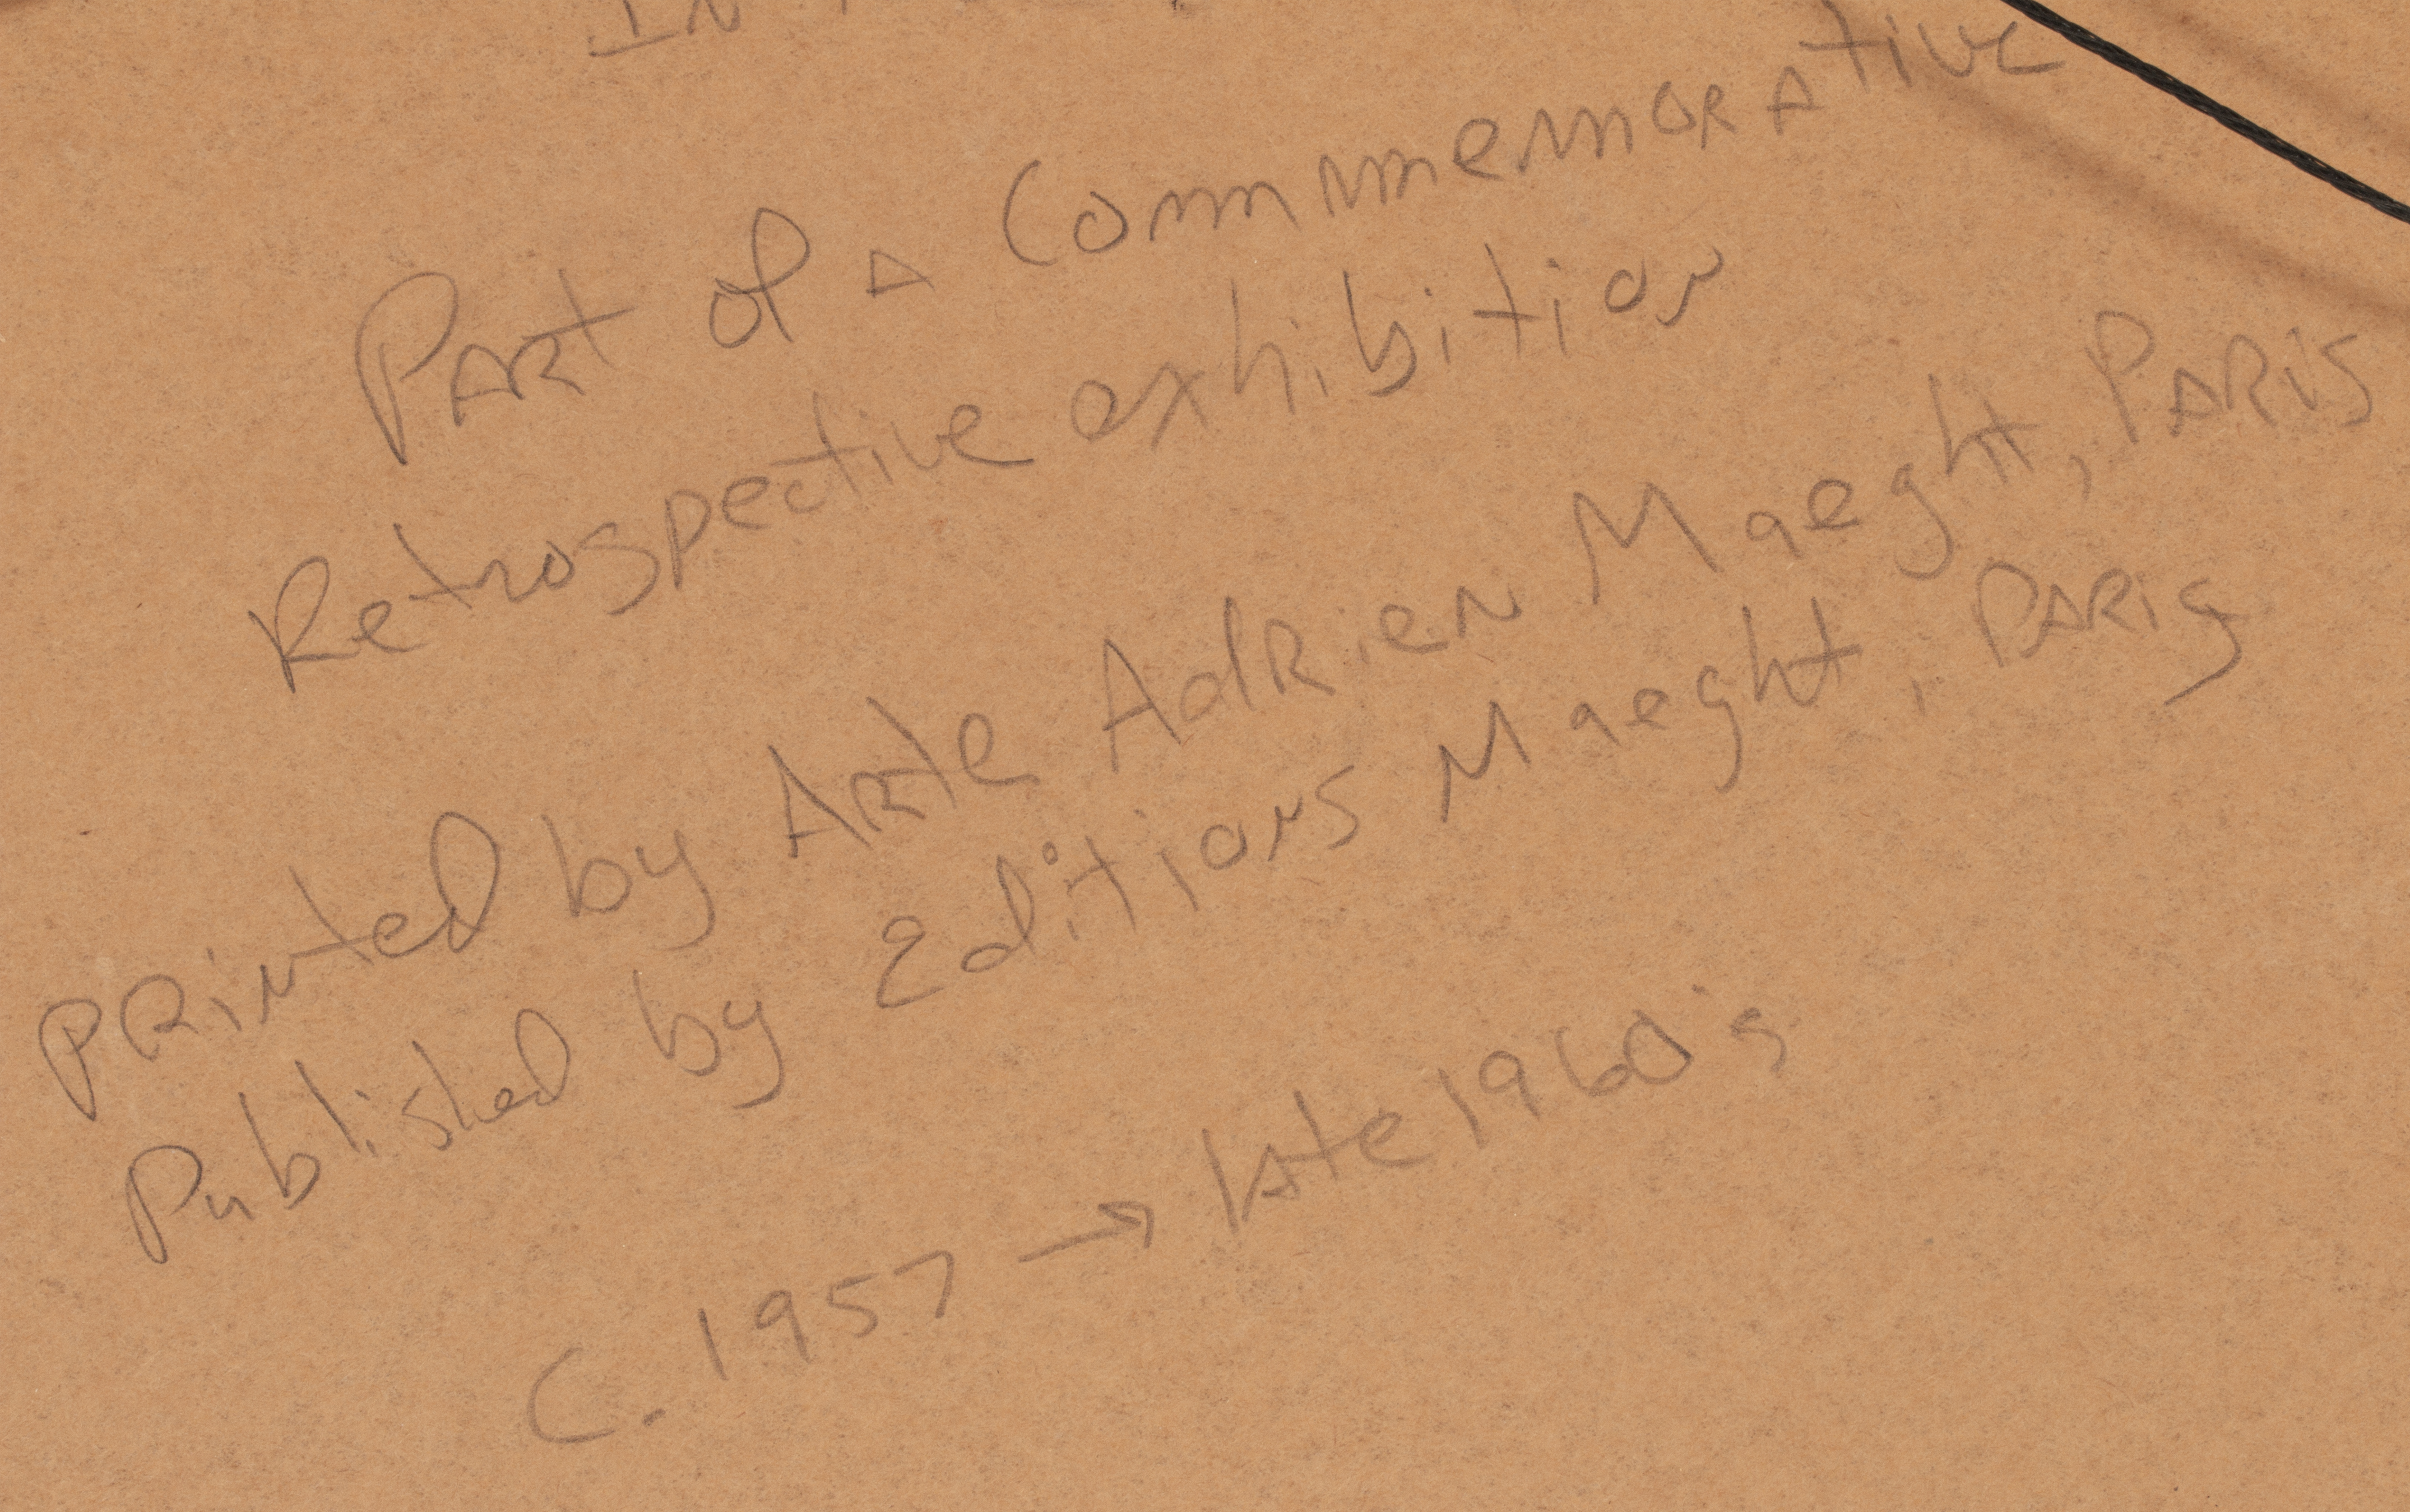 IN
Part of a Commemorative
Retrospective exhibition
Printed by Arte Adrien Maeght, Paris
Published by Editions Maeght, Paris
C. 1957 → late 1960's